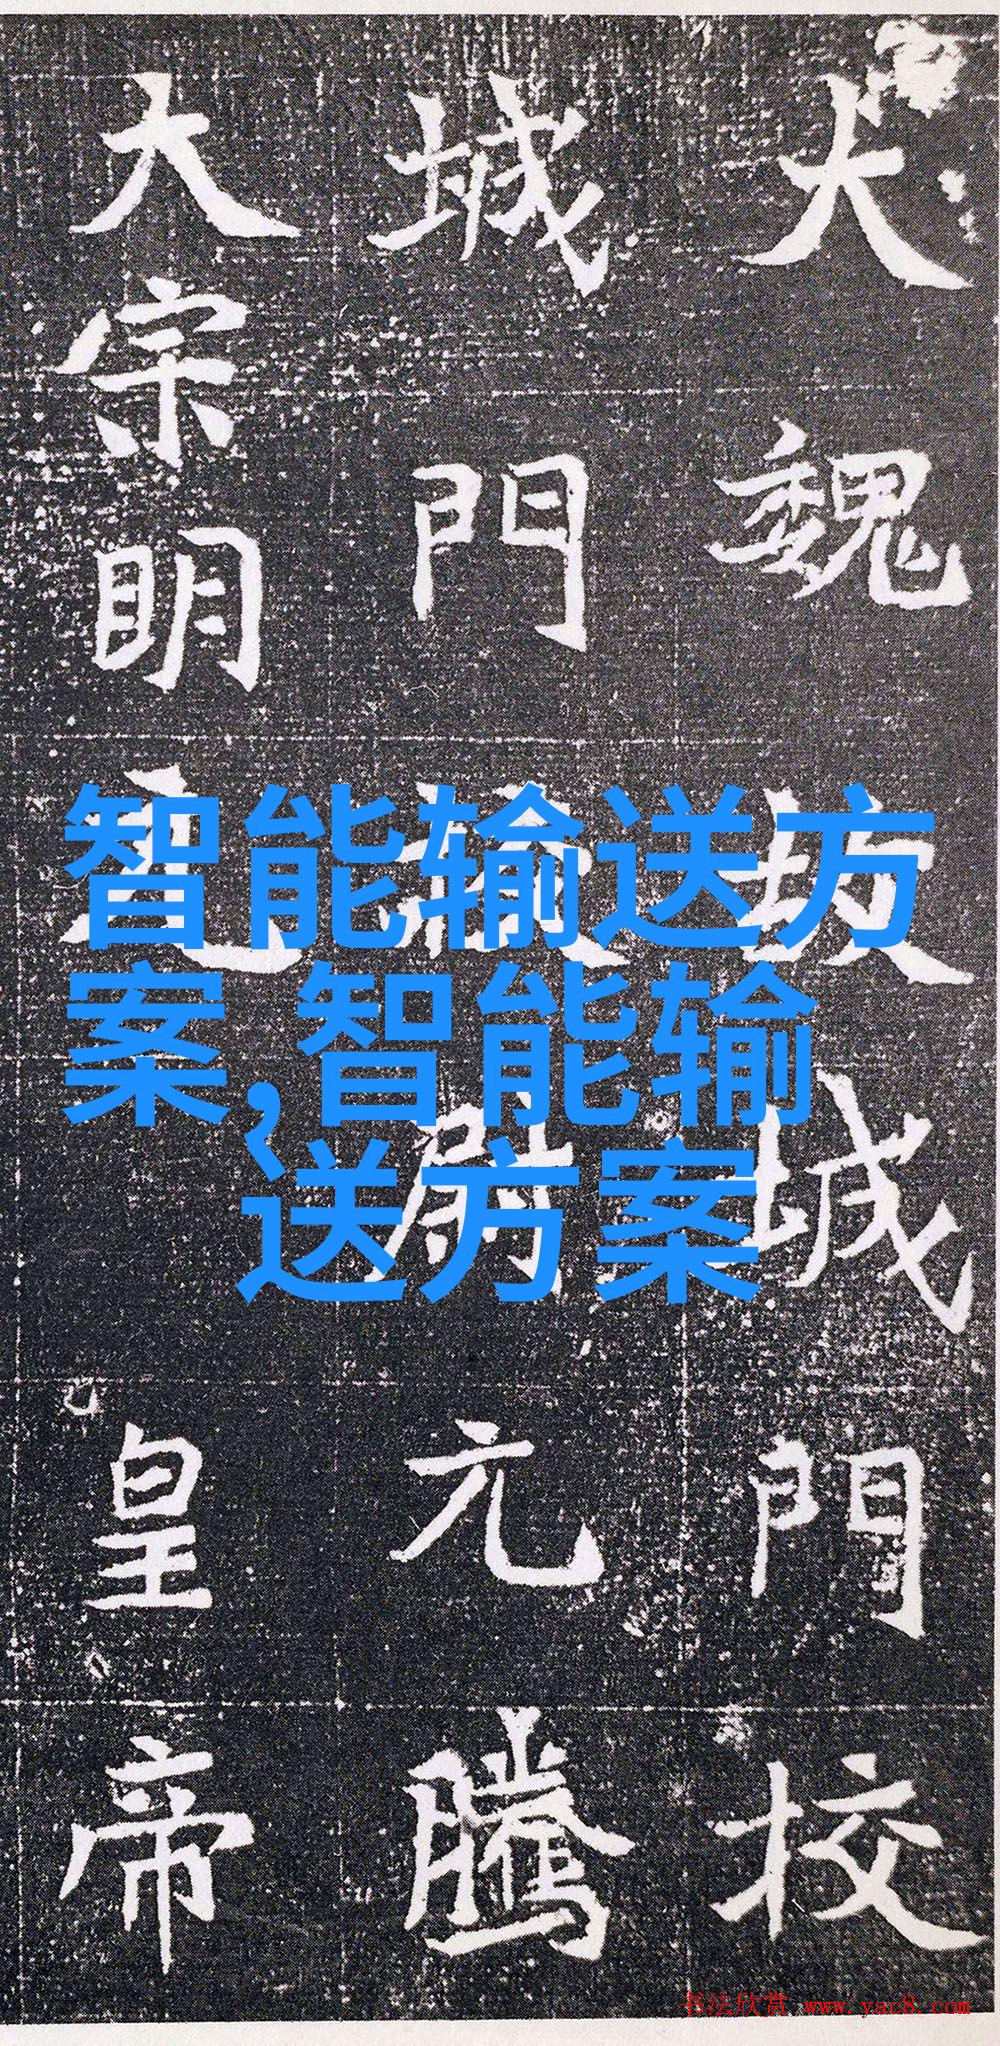 大魏城門校
城門尉元騰
大宗明皇帝
智能输送方
案,智能输
送方案
书法欣赏 www.yac8.com